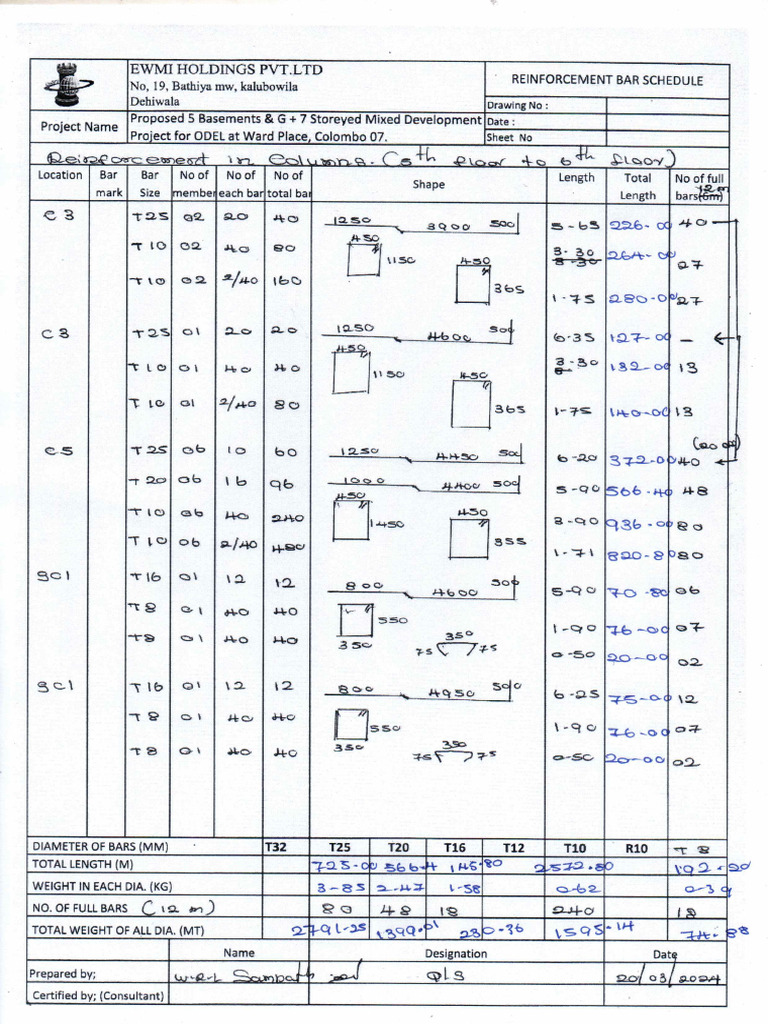 EWMI HOLDINGS PVT.LTD
No, 19, Bathiya mw, kalubowila
Dehiwala
REINFORCEMENT BAR SCHEDULE
Drawing No :
Project Name
Proposed 5 Basements & G + 7 Storeyed Mixed Development
Project for ODEL at Ward Place, Colombo 07.
Date :
Sheet No
Reinforcement in Columns. (5th floor to 6th floor)
Location Bar mark Bar Size No of member No of each bar No of total bar Shape Length Total Length No of full bars(6m) 12m
C3 T25 02 20 40 1250 3900 500 5-65 226-00 40
T10 02 40 80 450 1150 3-30 8-30 264-00 27
T10 02 2/40 160 450 365 1-75 280-00 27
C3 T25 01 20 20 1250 4600 500 6-35 127-00 -
T10 01 40 40 450 1150 3-30 132-00 13
T10 01 2/40 80 450 365 1-75 140-00 13
C5 T25 06 10 60 1250 4450 500 6-20 372-00 40
T20 06 16 96 1000 4400 500 5-90 566-40 48
T10 06 40 240 450 1450 3-90 936-00 80
T10 06 2/40 480 450 355 1-71 820-80 80
SC1 T16 01 12 12 800 4600 500 5-90 70-80 06
T8 01 40 40 550 350 1-90 76-00 07
T8 01 40 40 350 75 75 0-50 20-00 02
SC1 T16 01 12 12 800 4950 500 6-25 75-00 12
T8 01 40 40 550 350 1-90 76-00 07
T8 01 40 40 350 75 75 0-50 20-00 02
DIAMETER OF BARS (MM) T32 T25 T20 T16 T12 T10 R10 T8
TOTAL LENGTH (M) 725-00 566-4 145-80 2572-80 192-00
WEIGHT IN EACH DIA. (KG) 3-85 2-47 1-58 0-62 0-39
NO. OF FULL BARS (12m) 80 48 18 240 18
TOTAL WEIGHT OF ALL DIA. (MT) 2791-25 1399-01 230-36 1595-14 74-88
Name Designation Date
Prepared by; W.R.L Sampath QLS 20/03/2024
Certified by; (Consultant)